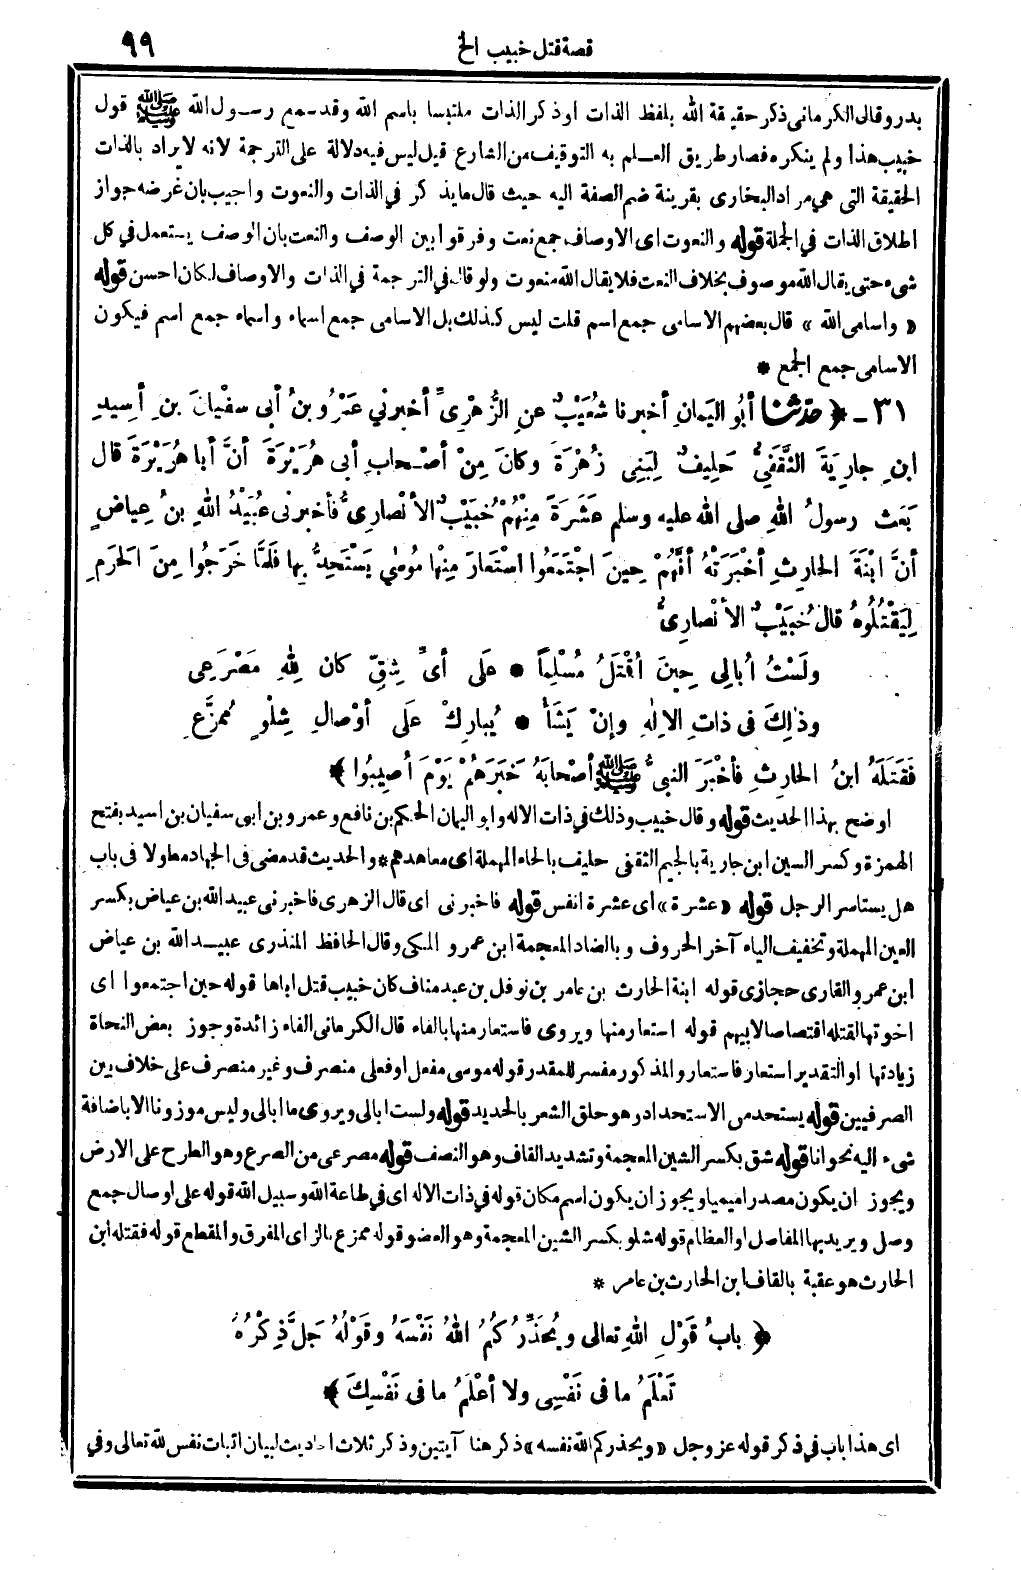 قصة قتل خبيب الخ
٩٩
بدر وقال الكرمانى ذكر حقيقة الله بلفظ الذات او ذكر الذات ملتبسا باسم الله وقد سمع رسول الله ﷺ قول
خبيب هذا ولم ينكره فصار طريق العلم به التوقيف من الشارع قيل ليس فيه دلالة على الترجمة لانه لا يراد بالذات
الحقيقة التى هي مراد البخارى بقرينة ضم الصفة اليه حيث قال ما يذكر في الذات والنعوت واجيب بان غرضه جواز
اطلاق الذات في الجملة قوله والنعوت اى الاوصاف جمع نعت وفرقوا بين الوصف والنعت بان الوصف يستعمل في كل
شىء حتى يقال الله موصوف بخلاف النعت فلا يقال الله منعوت ولو قال في الترجمة في الذات والاوصاف لكان احسن قوله
« واسامى الله » قال بعضهم الاسامى جمع اسم قلت ليس كذلك بل الاسامى جمع اسماء واسماء جمع اسم فيكون
الاسامى جمع الجمع *
٣١ - ﴿ حدثنا أبُو اليَمانِ أخبرنا شُعَيْبٌ عنِ الزُّهْرِىِّ أخبرني عَمْرُو بنُ أبى سفْيانَ بنِ أسِيدِ
ابنِ جارِيَةَ الثَّقَفِىُّ حَلِيفٌ لِبَنِى زُهْرَةَ وكانَ مِنْ أصْحابِ أبى هُرَيْرَةَ أنَّ أبا هُرَيْرَةَ قال
بَعَثَ رسولُ اللهِ صلى الله عليه وسلم عَشَرَةً مِنْهُمْ خُبَيْبٌ الأنْصارِىُّ فأخبرنى عُبَيْدُ اللهِ بنُ عِياضٍ
أنَّ ابْنَةَ الحارِثِ أخْبَرَتْهُ أنَّهُمْ حِينَ اجْتَمَعُوا اسْتَعارَ مِنْها مُوسَى يَسْتَحِدُّ بِها فَلَمَّا خَرَجُوا مِنَ الحَرَمِ
لِيَقْتُلُوهُ قال خُبَيْبٌ الأنْصارِىُّ
ولَسْتُ أُبالِى حِينَ أُقْتَلُ مُسْلِمًا * عَلَى أىِّ شِقٍّ كان لِلهِ مَصْرَعِى
وذٰلِكَ فى ذاتِ الالٰهِ وإنْ يَشَأْ * يُبارِكْ عَلَى أوْصالِ شِلْوٍ مُمَزَّعِ
فَقَتَلَهُ ابنُ الحارِثِ فأخْبَرَ النبىُّ ﷺ أصْحابَهُ خَبَرَهُمْ يَوْمَ أُصِيبُوا ﴾
اوضح بهذا الحديث قوله وقال خبيب وذلك في ذات الاله وابو اليمان الحكم بن نافع وعمرو بن ابى سفيان بن اسيد بفتح
الهمزة وكسر السين ابن جارية بالجيم الثقفى حليف بالحاء المهملة اى معاهدهم * والحديث قد مضى فى الجهاد مطولا فى باب
هل يستاسر الرجل قوله « عشرة » اى عشرة انفس قوله فاخبرنى اى قال الزهرى فاخبرنى عبيد الله بن عياض بكسر
العين المهملة وتخفيف الياء آخر الحروف وبالضاد المعجمة ابن عمرو المكى وقال الحافظ المنذرى عبيد الله بن عياض
ابن عمرو القارى حجازى قوله ابنة الحارث بن عامر بن نوفل بن عبد مناف كان خبيب قتل اباها قوله حين اجتمعوا اى
اخوتها لقتله اقتصاصا لابيهم قوله استعار منها ويروى فاستعار منها بالفاء قال الكرمانى الفاء زائدة وجوز بعض النحاة
زيادتها او التقدير استعار فاستعار والمذكور مفسر للمقدر قوله موسى مفعل او فعلى منصرف وغير منصرف على خلاف بين
الصرفيين قوله يستحد من الاستحداد وهو حلق الشعر بالحديد قوله ولست ابالى ويروى ما ابالى وليس موزونا الا باضافة
شىء اليه نحو انا قوله شق بكسر الشين المعجمة وتشديد القاف وهو النصف قوله مصرعى من الصرع وهو الطرح على الارض
ويجوز ان يكون مصدرا ميميا ويجوز ان يكون اسم مكان قوله في ذات الاله اى في طاعة الله وسبيل الله قوله على اوصال جمع
وصل ويريد بها المفاصل او العظام قوله شلو بكسر الشين المعجمة وهو العضو قوله ممزع بالزاى المفرق والمقطع قوله فقتله ابن
الحارث هو عقبة بالقاف ابن الحارث بن عامر *
﴿ بابُ قَوْلِ اللهِ تعالى ويُحَذِّرُكُمُ اللهُ نَفْسَهُ وقَوْلُهُ جَلَّ ذِكْرُهُ
تَعْلَمُ ما فى نَفْسِى ولا أعْلَمُ ما فى نَفْسِكَ ﴾
اى هذا باب في ذكر قوله عز وجل « ويحذركم الله نفسه » ذكر هنا آيتين وذكر ثلاث احاديث لبيان اثبات نفس لله تعالى وفي